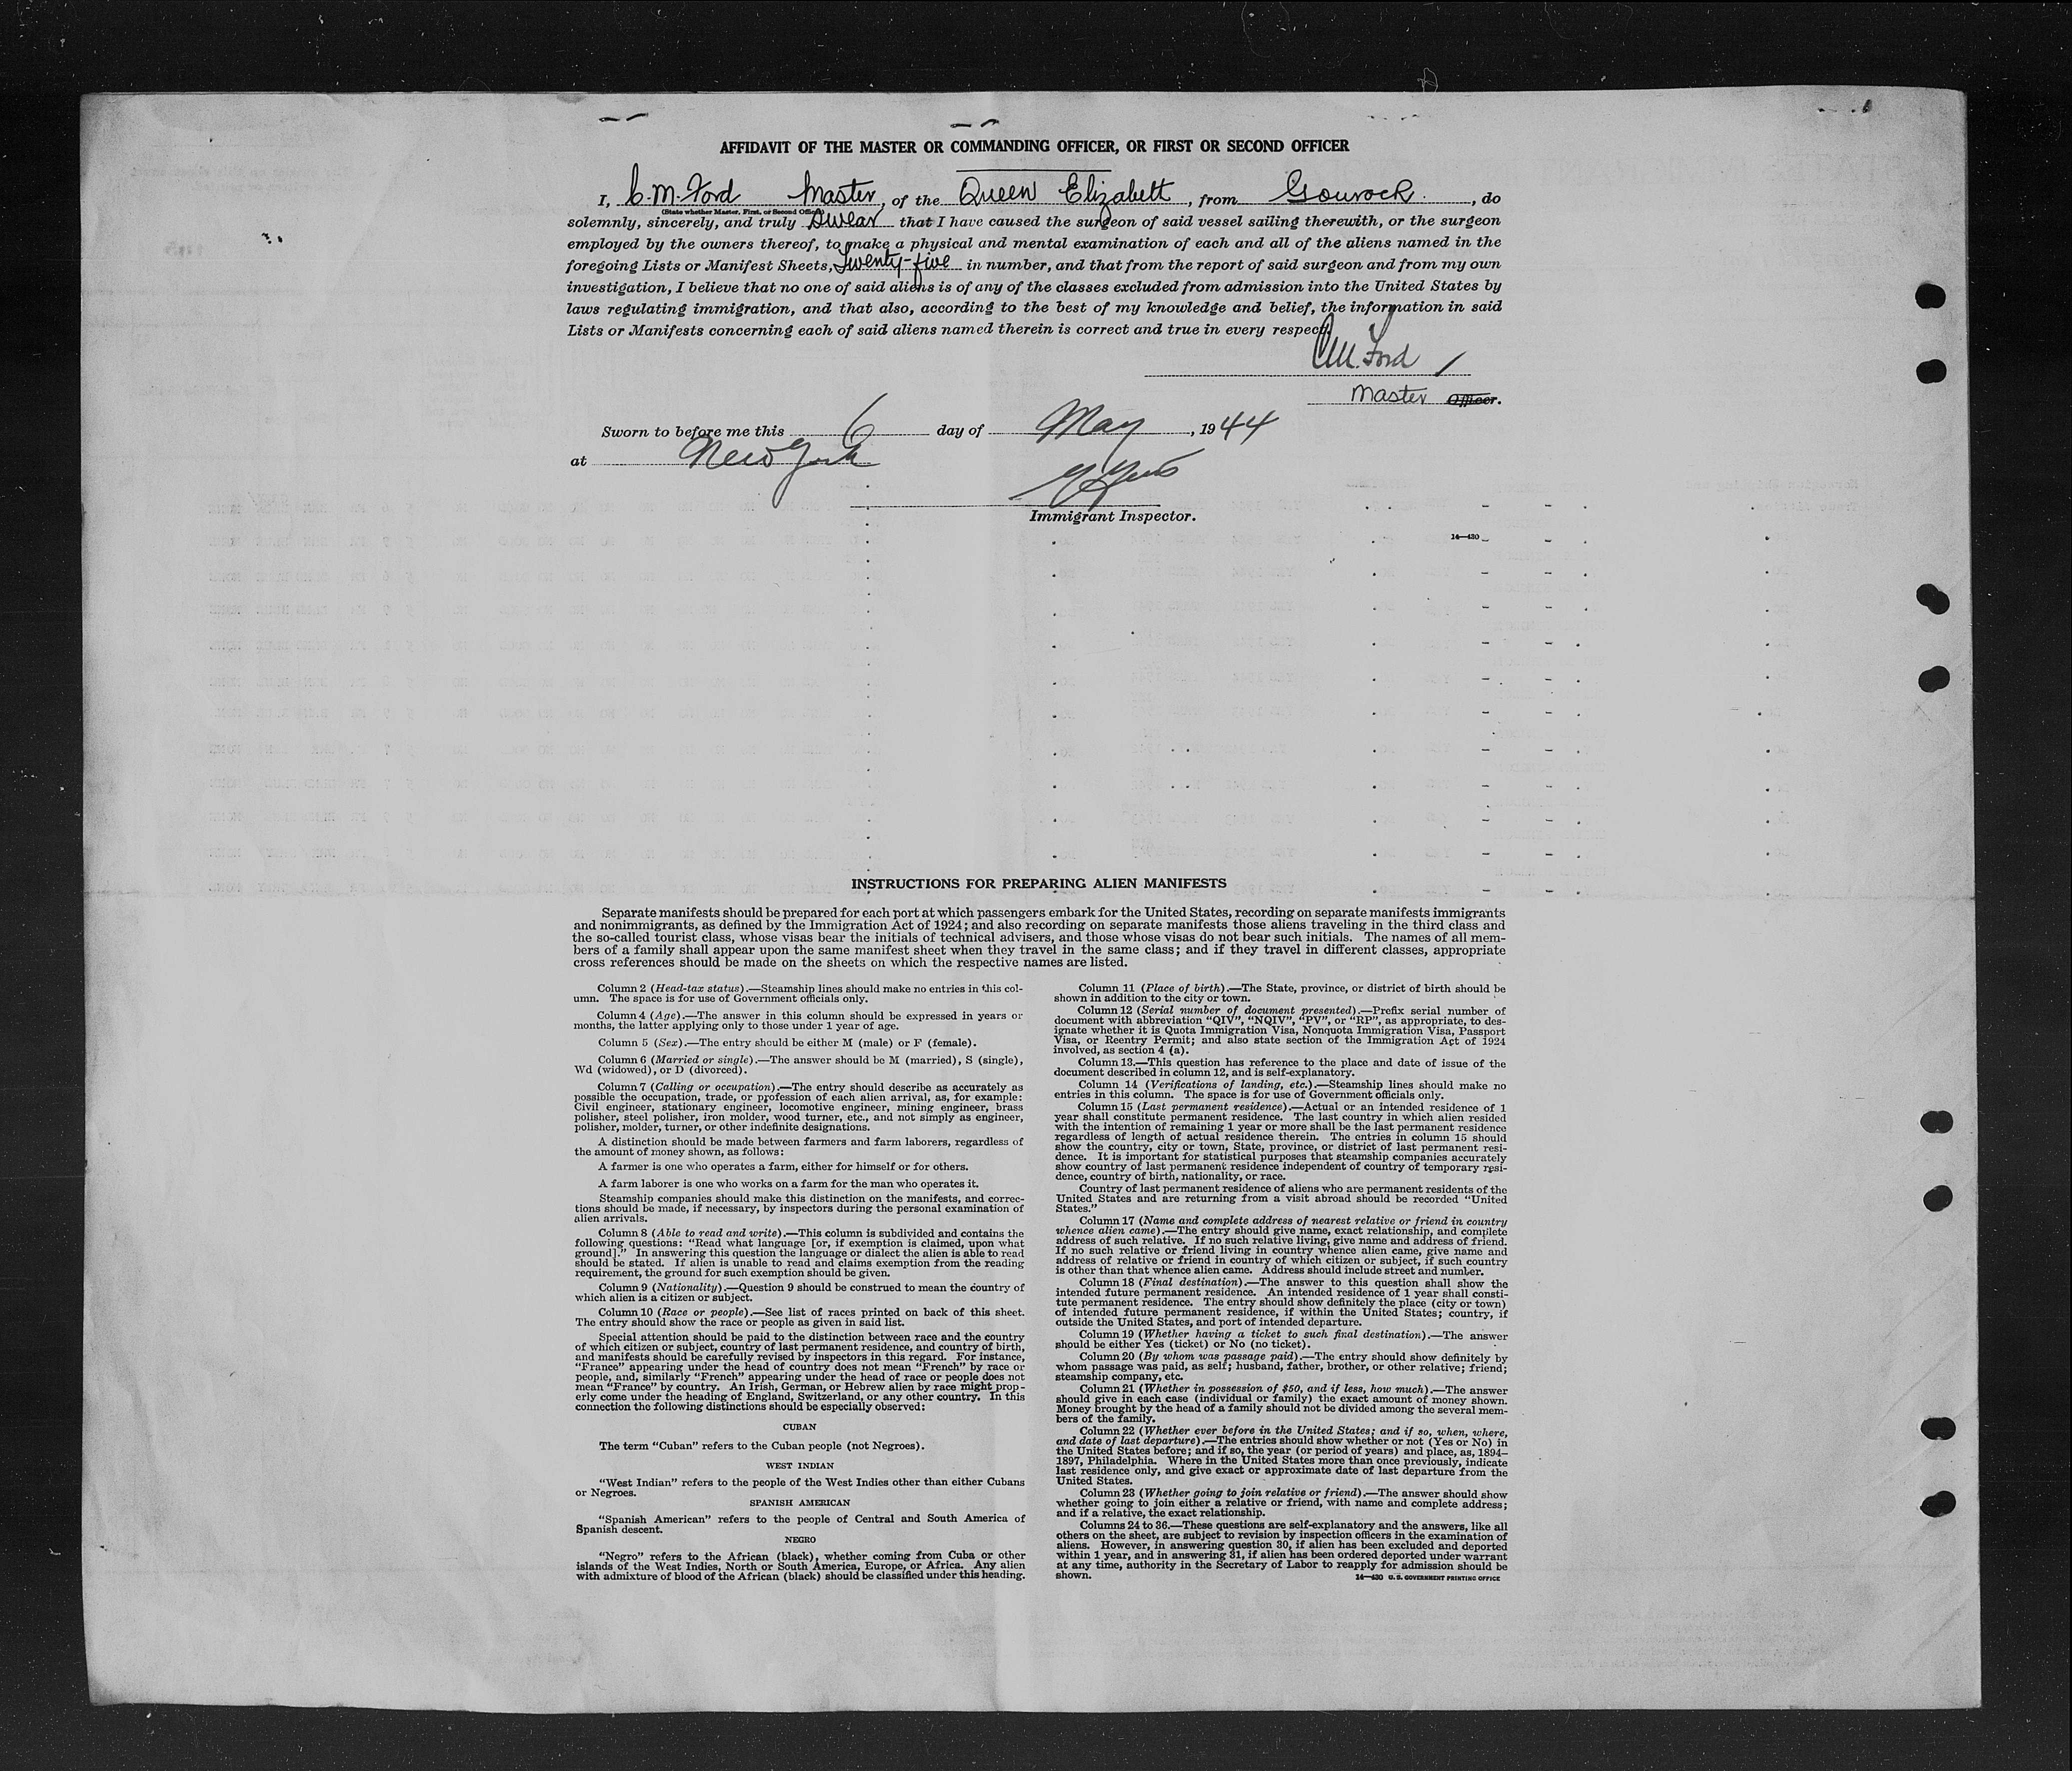 AFFIDAVIT OF THE MASTER OR COMMANDING OFFICER, OR FIRST OR SECOND OFFICER
I, C. M. Ford Master, of the Queen Elizabeth, from Gourock, do
(State whether Master, First, or Second Officer)
solemnly, sincerely, and truly swear that I have caused the surgeon of said vessel sailing therewith, or the surgeon
employed by the owners thereof, to make a physical and mental examination of each and all of the aliens named in the
foregoing Lists or Manifest Sheets, Twenty-five in number, and that from the report of said surgeon and from my own
investigation, I believe that no one of said aliens is of any of the classes excluded from admission into the United States by
laws regulating immigration, and that also, according to the best of my knowledge and belief, the information in said
Lists or Manifests concerning each of said aliens named therein is correct and true in every respect.
C M. Ford
Master Officer.
Sworn to before me this 6 day of May, 1944
at New York
Immigrant Inspector.
14—430
INSTRUCTIONS FOR PREPARING ALIEN MANIFESTS
Separate manifests should be prepared for each port at which passengers embark for the United States, recording on separate manifests immigrants
and nonimmigrants, as defined by the Immigration Act of 1924; and also recording on separate manifests those aliens traveling in the third class and
the so-called tourist class, whose visas bear the initials of technical advisers, and those whose visas do not bear such initials. The names of all mem-
bers of a family shall appear upon the same manifest sheet when they travel in the same class; and if they travel in different classes, appropriate
cross references should be made on the sheets on which the respective names are listed.
Column 2 (Head-tax status).—Steamship lines should make no entries in this col-
umn. The space is for use of Government officials only.
Column 4 (Age).—The answer in this column should be expressed in years or
months, the latter applying only to those under 1 year of age.
Column 5 (Sex).—The entry should be either M (male) or F (female).
Column 6 (Married or single).—The answer should be M (married), S (single),
Wd (widowed), or D (divorced).
Column 7 (Calling or occupation).—The entry should describe as accurately as
possible the occupation, trade, or profession of each alien arrival, as, for example:
Civil engineer, stationary engineer, locomotive engineer, mining engineer, brass
polisher, steel polisher, iron molder, wood turner, etc., and not simply as engineer,
polisher, molder, turner, or other indefinite designations.
A distinction should be made between farmers and farm laborers, regardless of
the amount of money shown, as follows:
A farmer is one who operates a farm, either for himself or for others.
A farm laborer is one who works on a farm for the man who operates it.
Steamship companies should make this distinction on the manifests, and correc-
tions should be made, if necessary, by inspectors during the personal examination of
alien arrivals.
Column 8 (Able to read and write).—This column is subdivided and contains the
following questions: "Read what language [or, if exemption is claimed, upon what
ground]." In answering this question the language or dialect the alien is able to read
should be stated. If alien is unable to read and claims exemption from the reading
requirement, the ground for such exemption should be given.
Column 9 (Nationality).—Question 9 should be construed to mean the country of
which alien is a citizen or subject.
Column 10 (Race or people).—See list of races printed on back of this sheet.
The entry should show the race or people as given in said list.
Special attention should be paid to the distinction between race and the country
of which citizen or subject, country of last permanent residence, and country of birth,
and manifests should be carefully revised by inspectors in this regard. For instance,
"France" appearing under the head of country does not mean "French" by race or
people, and, similarly "French" appearing under the head of race or people does not
mean "France" by country. An Irish, German, or Hebrew alien by race might prop-
erly come under the heading of England, Switzerland, or any other country. In this
connection the following distinctions should be especially observed:
CUBAN
The term "Cuban" refers to the Cuban people (not Negroes).
WEST INDIAN
"West Indian" refers to the people of the West Indies other than either Cubans
or Negroes.
SPANISH AMERICAN
"Spanish American" refers to the people of Central and South America of
Spanish descent.
NEGRO
"Negro" refers to the African (black), whether coming from Cuba or other
islands of the West Indies, North or South America, Europe, or Africa. Any alien
with admixture of blood of the African (black) should be classified under this heading.
Column 11 (Place of birth).—The State, province, or district of birth should be
shown in addition to the city or town.
Column 12 (Serial number of document presented).—Prefix serial number of
document with abbreviation "QIV", "NQIV", "PV", or "RP", as appropriate, to des-
ignate whether it is Quota Immigration Visa, Nonquota Immigration Visa, Passport
Visa, or Reentry Permit; and also state section of the Immigration Act of 1924
involved, as section 4 (a).
Column 13.—This question has reference to the place and date of issue of the
document described in column 12, and is self-explanatory.
Column 14 (Verifications of landing, etc.).—Steamship lines should make no
entries in this column. The space is for use of Government officials only.
Column 15 (Last permanent residence).—Actual or an intended residence of 1
year shall constitute permanent residence. The last country in which alien resided
with the intention of remaining 1 year or more shall be the last permanent residence
regardless of length of actual residence therein. The entries in column 15 should
show the country, city or town, State, province, or district of last permanent resi-
dence. It is important for statistical purposes that steamship companies accurately
show country of last permanent residence independent of country of temporary resi-
dence, country of birth, nationality, or race.
Country of last permanent residence of aliens who are permanent residents of the
United States and are returning from a visit abroad should be recorded "United
States."
Column 17 (Name and complete address of nearest relative or friend in country
whence alien came).—The entry should give name, exact relationship, and complete
address of such relative. If no such relative living, give name and address of friend.
If no such relative or friend living in country whence alien came, give name and
address of relative or friend in country of which citizen or subject, if such country
is other than that whence alien came. Address should include street and number.
Column 18 (Final destination).—The answer to this question shall show the
intended future permanent residence. An intended residence of 1 year shall consti-
tute permanent residence. The entry should show definitely the place (city or town)
of intended future permanent residence, if within the United States; country, if
outside the United States, and port of intended departure.
Column 19 (Whether having a ticket to such final destination).—The answer
should be either Yes (ticket) or No (no ticket).
Column 20 (By whom was passage paid).—The entry should show definitely by
whom passage was paid, as self; husband, father, brother, or other relative; friend;
steamship company, etc.
Column 21 (Whether in possession of $50, and if less, how much).—The answer
should give in each case (individual or family) the exact amount of money shown.
Money brought by the head of a family should not be divided among the several mem-
bers of the family.
Column 22 (Whether ever before in the United States; and if so, when, where,
and date of last departure).—The entries should show whether or not (Yes or No) in
the United States before; and if so, the year (or period of years) and place, as, 1894–
1897, Philadelphia. Where in the United States more than once previously, indicate
last residence only, and give exact or approximate date of last departure from the
United States.
Column 23 (Whether going to join relative or friend).—The answer should show
whether going to join either a relative or friend, with name and complete address;
and if a relative, the exact relationship.
Columns 24 to 36.—These questions are self-explanatory and the answers, like all
others on the sheet, are subject to revision by inspection officers in the examination of
aliens. However, in answering question 30, if alien has been excluded and deported
within 1 year, and in answering 31, if alien has been ordered deported under warrant
at any time, authority in the Secretary of Labor to reapply for admission should be
shown.
14—430 U. S. GOVERNMENT PRINTING OFFICE